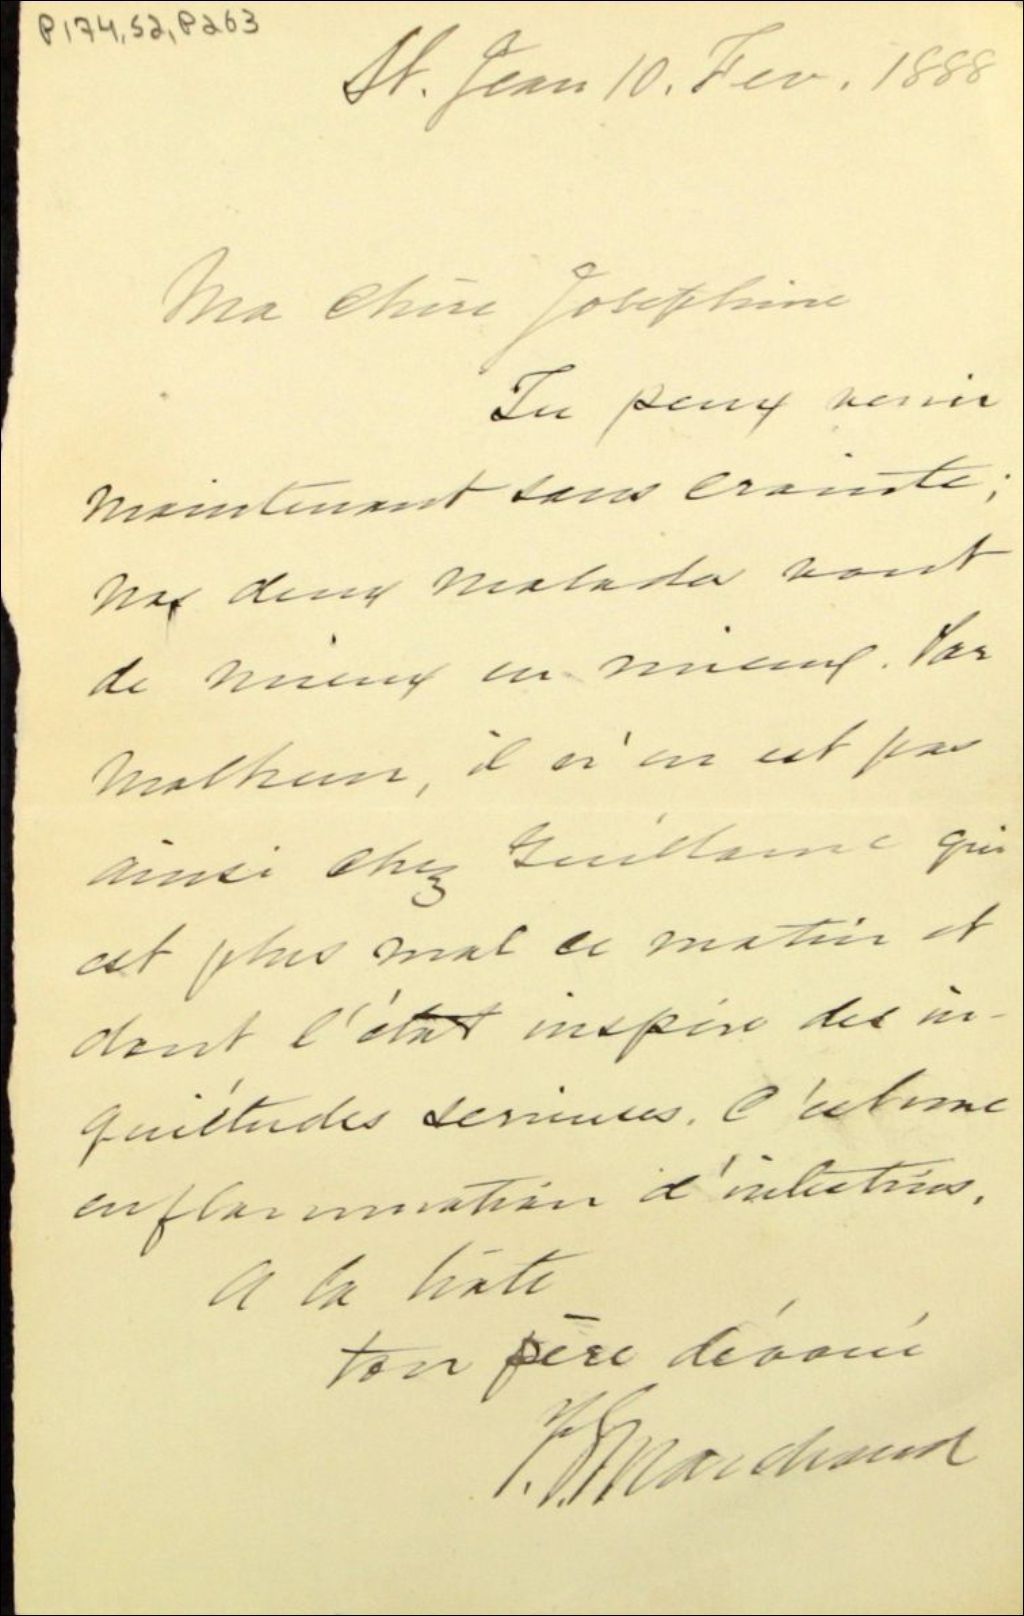 P174,S2,P263
St. Jean 10. Fev. 1888
Ma chère Josephine
Tu peux venir
maintenant sans crainte;
nos deux malades vont
de mieux en mieux. Par
malheur, il n'en est pas
ainsi chez Guillaume qui
est plus mal ce matin et
dont l'état inspire des in-
quiétudes serieuses. C'est une
enflammation d'intestins.
A la hâte
ton père dévoué
F. G. Marchand